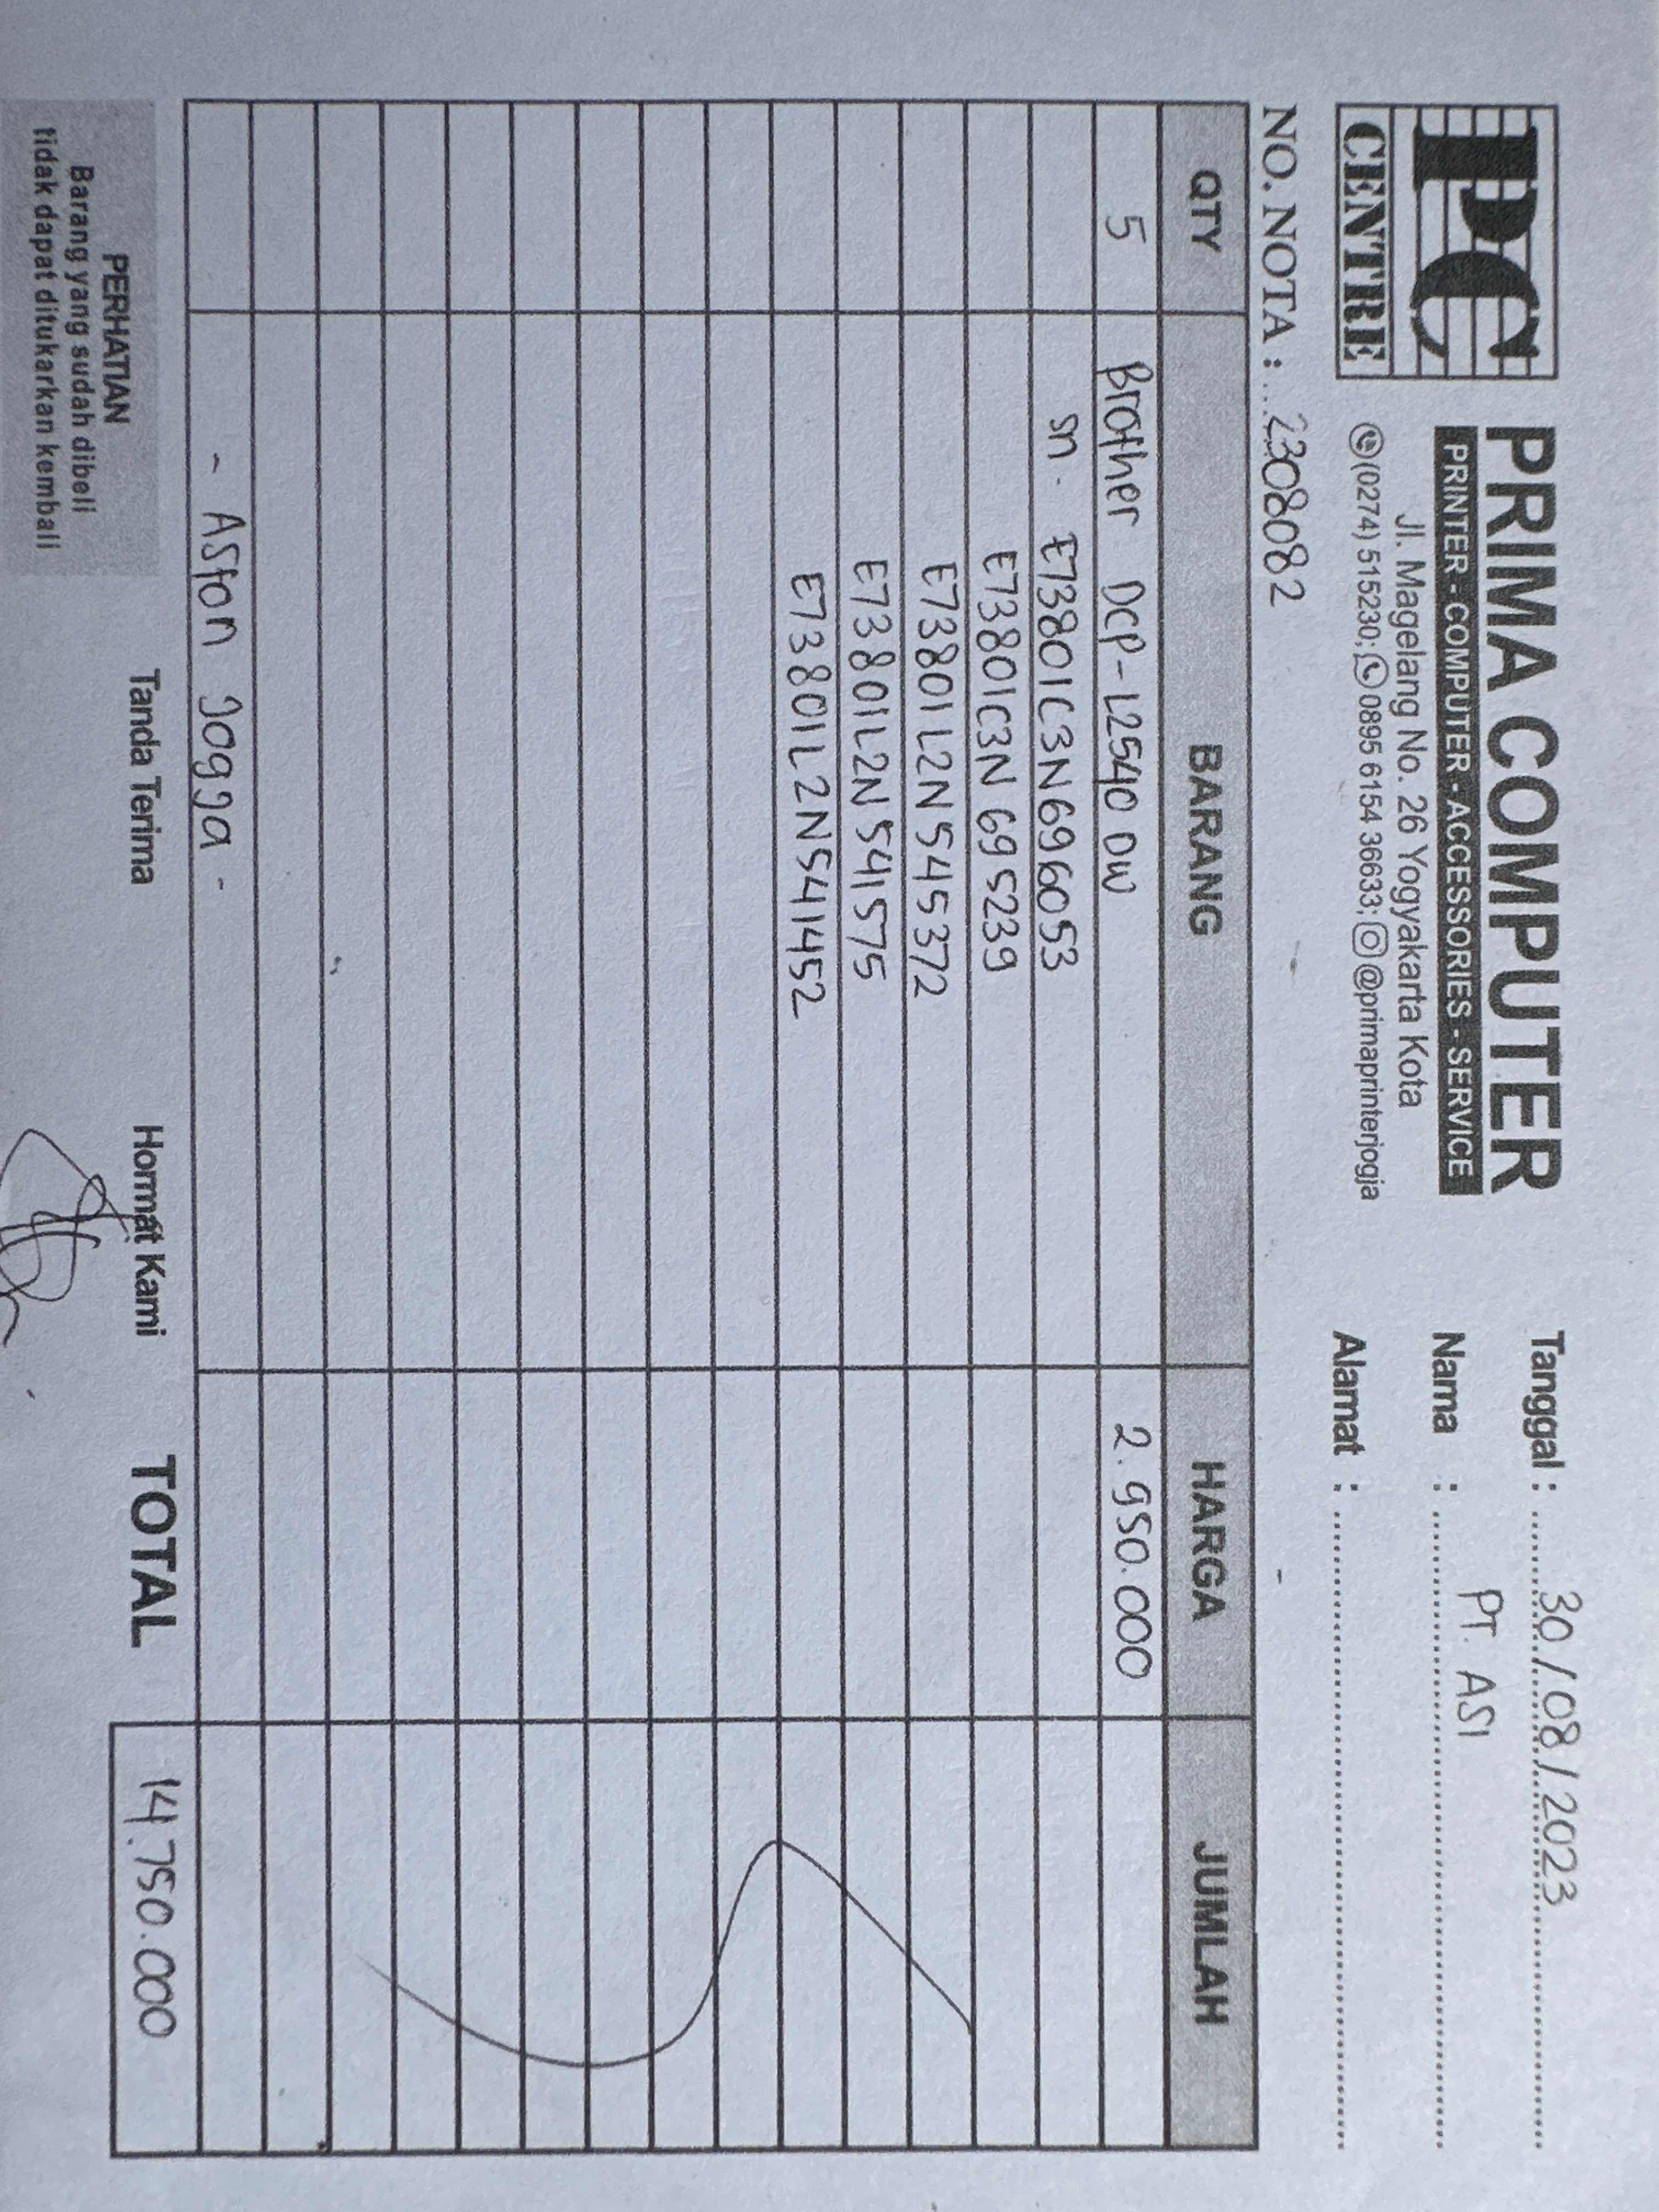 PC
CENTRE
PRIMA COMPUTER
PRINTER - COMPUTER - ACCESSORIES - SERVICE
Jl. Magelang No. 26 Yogyakarta Kota
(0274) 515230; 0895 6154 36633; @primaprinterjogja
Tanggal : 30/08/2023
Nama : PT. ASI
Alamat :
NO. NOTA : 2308082
QTY BARANG HARGA JUMLAH
5 Brother DCP-L2540 DW 2.950.000
sn. E73801C3N696053
E73801C3N695239
E73801L2N545372
E73801L2N541575
E73801L2N541452
- Aston Jogga -
PERHATIAN
Barang yang sudah dibeli
tidak dapat ditukarkan kembali
Tanda Terima
Hormat Kami
TOTAL 14.750.000